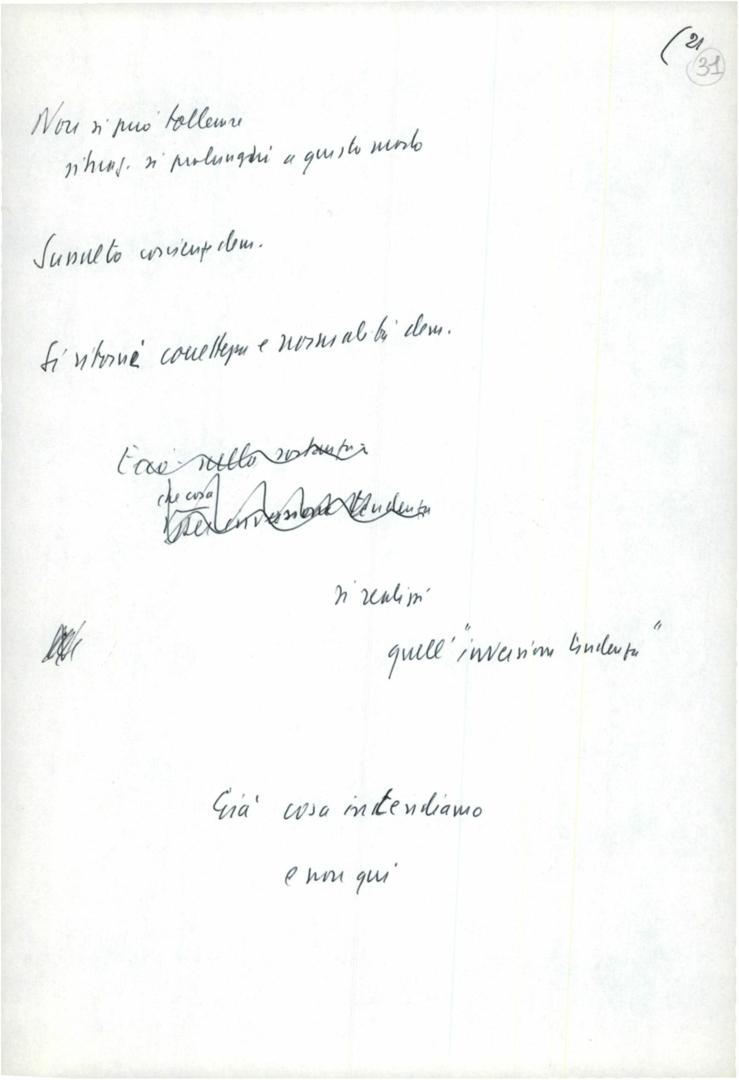 (21
31
Non si può tollerare
situaz. si prolunghi a questo modo
Sussulto coscienza dem.
Si ritorni correttezza e normalità dem.
E ciò nella sostanza
che cosa
per inversione tendenza
si realizzi
quell' "inversione tendenza"
Già cosa intendiamo
e non qui